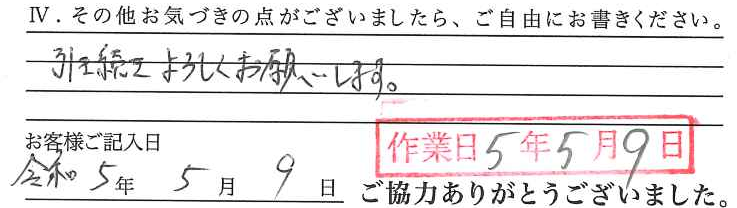 Ⅳ．その他お気づきの点がございましたら、ご自由にお書きください。
引き続きよろしくお願いします。
お客様ご記入日
作業日5年5月9日
令和5年5月9日
ご協力ありがとうございました。